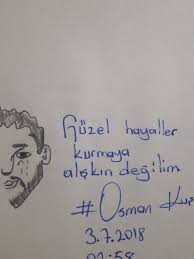 Güzel hayaller
kurmaya
alışkın değilim
#Osman
3.7.2018